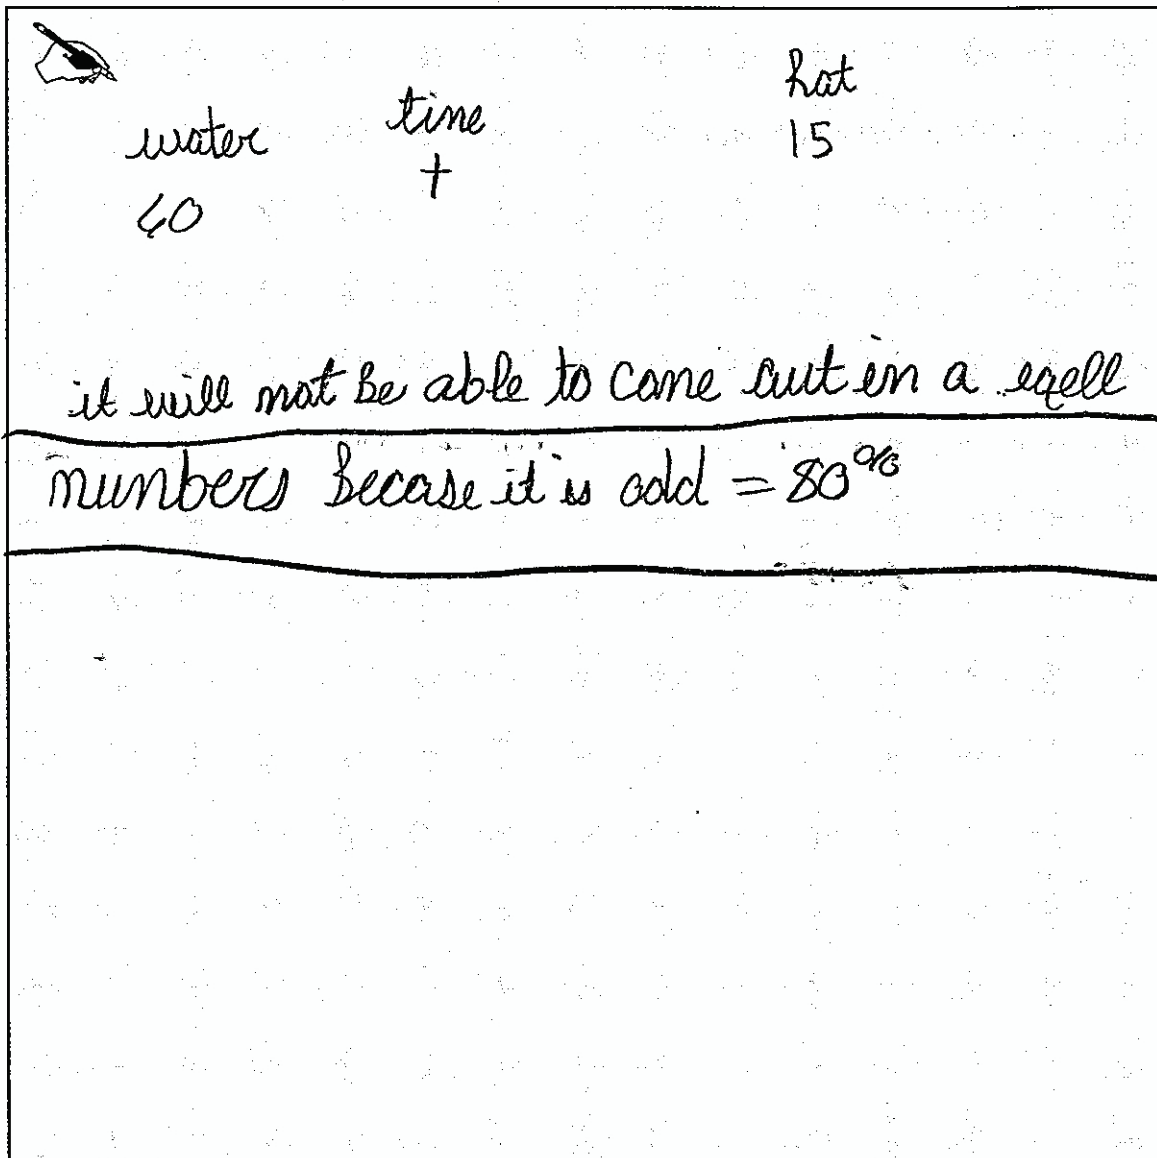 water time hat
60 + 15
it will not Be able to come out in a eqell
numbers Becase it is odd = 80%